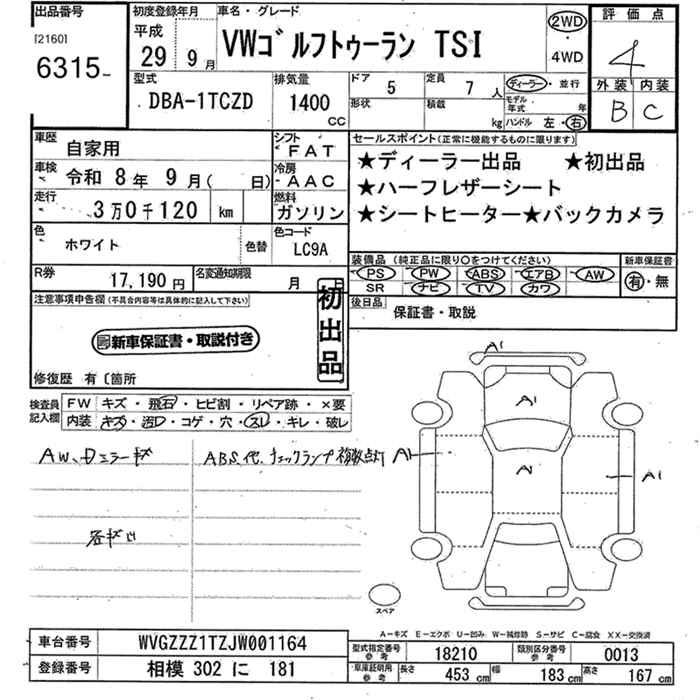 出品番号
[2160]
6315
初度登録年月
平成
29 9月
車名・グレード
VWゴルフトゥーラン TSI
2WD
・
4WD
評価点
4
外装 内装
B C
型式
DBA-1TCZD
排気量
1400
CC
ドア 5
定員 7 人
形状
積載 kg
ディーラー・並行
モデル年式 年
ハンドル 左・右
車歴 自家用
シフト FAT
車検 令和 8年 9月( 日)
冷房 AAC
走行 3万0千120 km
燃料 ガソリン
色 ホワイト
色替
色コード LC9A
R券 17,190円
名変通知期限 月 日
セールスポイント(正常に機能するものに限ります)
★ディーラー出品 ★初出品
★ハーフレザーシート
★シートヒーター★バックカメラ
装備品 (純正品に限り〇をつけてください)
PS PW ABS エアB AW
SR ナビ TV カワ
新車保証書
有・無
後日品
保証書・取説
注意事項申告欄(不具合内容等は具体的に記入して下さい)
新車保証書・取説付き
初出品
修復歴 有〔箇所
検査員記入欄
FW キズ・飛石・ヒビ割・リペア跡・×要
内装 キズ・汚レ・コゲ・穴・スレ・キレ・破レ
ABS、他、チェックランプ複数点灯
A1
A1
A1
A1
A1
スペア
A－キズ E－エクボ U－凹み W－補修跡 S－サビ C－腐食 XX－交換済
車台番号 WVGZZZ1TZJW001164
登録番号 相模 302 に 181
型式指定番号 参考 18210
類別区分番号 参考 0013
車庫証明用 参考
長さ 453 cm
幅 183 cm
高さ 167 cm